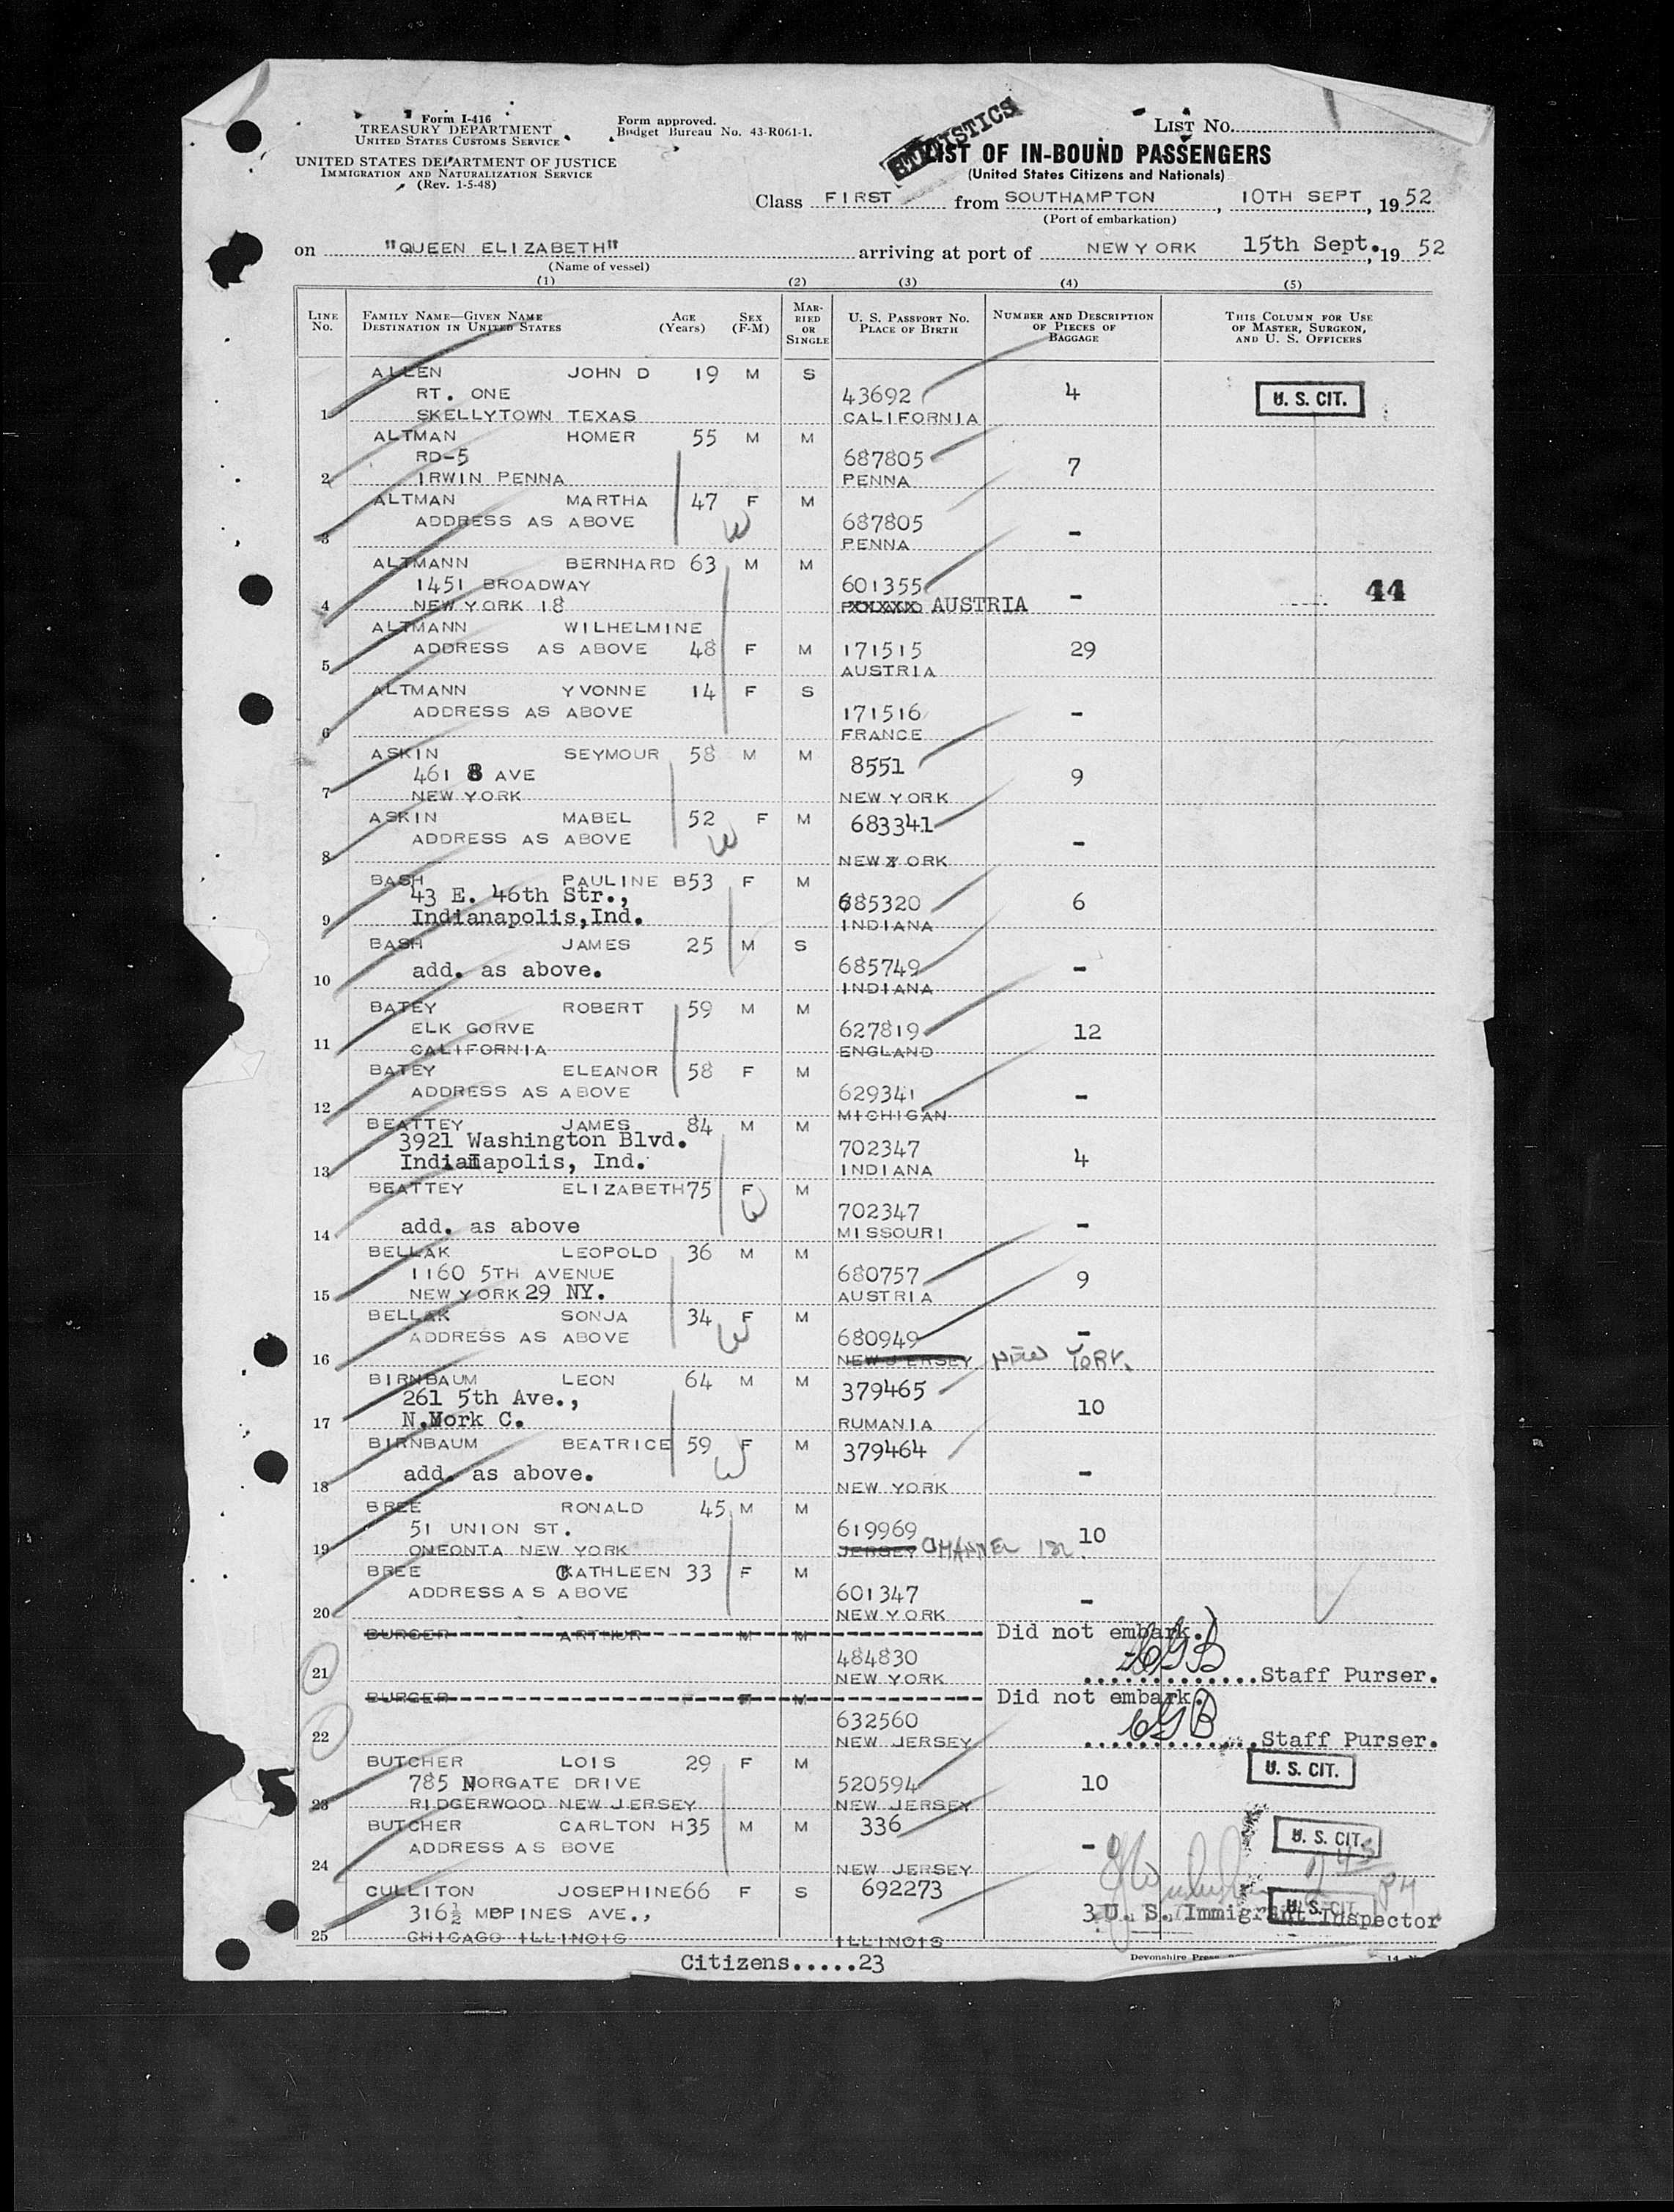 Form I-416
TREASURY DEPARTMENT
UNITED STATES CUSTOMS SERVICE
UNITED STATES DEPARTMENT OF JUSTICE
IMMIGRATION AND NATURALIZATION SERVICE
(Rev. 1-5-48)
Form approved.
Budget Bureau No. 43-R061-1.
STATISTICS
LIST No.
LIST OF IN-BOUND PASSENGERS
(United States Citizens and Nationals)
Class FIRST from SOUTHAMPTON, 10TH SEPT, 1952
(Port of embarkation)
on "QUEEN ELIZABETH" arriving at port of NEW YORK 15th Sept., 19 52
(Name of vessel)
(1) (2) (3) (4) (5)
LINE NO. FAMILY NAME—GIVEN NAME DESTINATION IN UNITED STATES AGE (Years) SEX (F-M) MARRIED OR SINGLE U. S. PASSPORT NO. PLACE OF BIRTH NUMBER AND DESCRIPTION OF PIECES OF BAGGAGE THIS COLUMN FOR USE OF MASTER, SURGEON, AND U. S. OFFICERS
ALLEN JOHN D 19 M S
RT. ONE 43692 4 U. S. CIT.
1 SKELLYTOWN TEXAS CALIFORNIA
ALTMAN HOMER 55 M M
RD-5 687805 7
2 IRWIN PENNA PENNA
ALTMAN MARTHA 47 F M
ADDRESS AS ABOVE W 687805
3 PENNA -
ALTMANN BERNHARD 63 M M
1451 BROADWAY 601355 - 44
4 NEW YORK 18 AUSTRIA
ALTMANN WILHELMINE
ADDRESS AS ABOVE 48 F M 171515 29
5 AUSTRIA
ALTMANN YVONNE 14 F S
ADDRESS AS ABOVE 171516 -
6 FRANCE
ASKIN SEYMOUR 58 M M
461 8 AVE 8551 9
7 NEW YORK NEW YORK
ASKIN MABEL 52 F M 683341
ADDRESS AS ABOVE W -
8 NEW YORK
BASH PAULINE B 53 F M
43 E. 46th Str., 685320 6
9 Indianapolis,Ind. INDIANA
BASH JAMES 25 M S
10 add. as above. 685749 -
INDIANA
BATEY ROBERT 59 M M
ELK GORVE 627819 12
11 CALIFORNIA ENGLAND
BATEY ELEANOR 58 F M
ADDRESS AS ABOVE 629341 -
12 MICHIGAN
BEATTEY JAMES 84 M M
3921 Washington Blvd. 702347 4
13 Indianapolis, Ind. INDIANA
BEATTEY ELIZABETH 75 F M
W 702347
14 add. as above MISSOURI -
BELLAK LEOPOLD 36 M M
1160 5TH AVENUE 680757 9
15 NEW YORK 29 NY. AUSTRIA
BELLAK SONJA 34 F M
ADDRESS AS ABOVE W 680949 -
16 NEW JERSEY NEW YORK.
BIRNBAUM LEON 64 M M 379465
261 5th Ave., 10
17 N.York C. RUMANIA
BIRNBAUM BEATRICE 59 F M 379464
add. as above. W -
18 NEW YORK
BREE RONALD 45 M M
51 UNION ST. 619969 10
19 ONEONTA NEW YORK JERSEY CHANNEL ISL.
BREE KATHLEEN 33 F M
ADDRESS AS ABOVE 601347 -
20 NEW YORK
BURGER ARTHUR M M Did not embark.
484830
21 NEW YORK Staff Purser.
BURGER F M Did not embark.
632560
22 NEW JERSEY Staff Purser.
BUTCHER LOIS 29 F M U. S. CIT.
785 NORGATE DRIVE 520594 10
23 RIDGERWOOD NEW JERSEY NEW JERSEY
BUTCHER CARLTON H 35 M M 336 U. S. CIT.
ADDRESS AS BOVE -
24 NEW JERSEY
CULLITON JOSEPHINE 66 F S 692273 U. S. CIT.
316½ MDPINES AVE., 3 U. S. Immigrant Inspector
25 CHICAGO ILLINOIS ILLINOIS
Citizens.....23
Devonshire Press